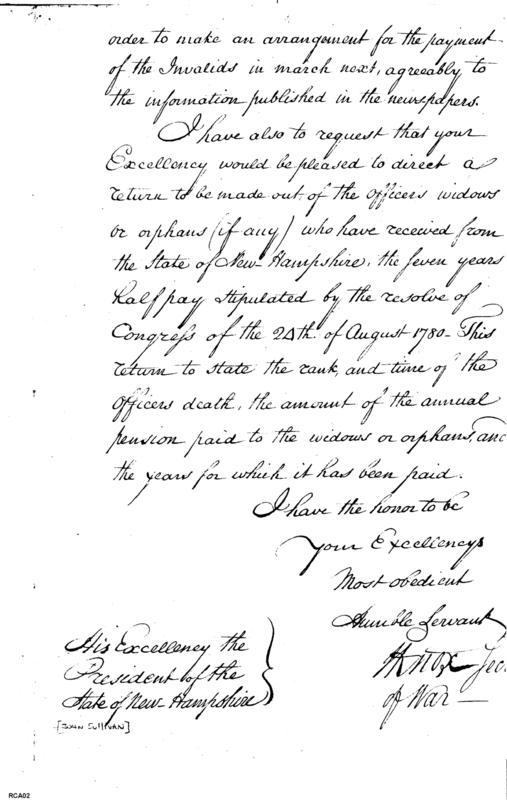 order to make an arrangement for the payment
of the Invalids in march next, agreeably to
the information published in the newspapers.
I have also to request that your
Excellency would be pleased to direct a
return to be made out of the officers widows
or orphans (if any) who have received from
the State of New-Hampshire, the seven years
half pay stipulated by the resolve of
Congress of the 24th. of August 1780 – This
return to state the rank, and time of the
officers death, the amount of the annual
pension paid to the widows or orphans, and
the years for which it has been paid.
I have the honor to be
your Excellencys
Most obedient
Humble Servant
HKnox Sec
of War —
His Excellency the
President of the
State of New-Hampshire
[JOHN SULLIVAN]
RCA02